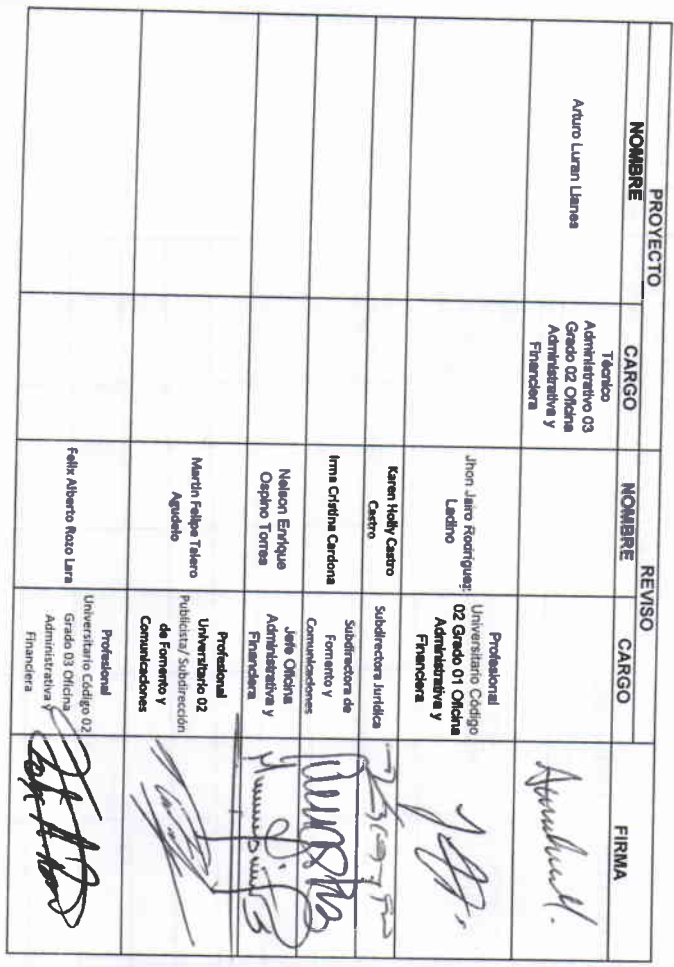 PROYECTO
REVISO
FIRMA
NOMBRE
CARGO
NOMBRE
CARGO
Arturo Luran Llanes
Técnico
Administrativo 03
Grado 02 Oficina
Administrativa y
Financiera
Jhon Jairo Rodríguez
Ladino
Profesional
Universitario Código
02 Grado 01 Oficina
Administrativa y
Financiera
Karen Holly Castro
Castro
Subdirectora Jurídica
Irma Cristina Cardona
Subdirectora de
Fomento y
Comunicaciones
Nelson Enrique
Ospino Torres
Jefe Oficina
Administrativa y
Financiera
Martin Felipe Talero
Agudelo
Profesional
Universitario 02
Publicista/ Subdirección
de Fomento y
Comunicaciones
Felix Alberto Rozo Lara
Profesional
Universitario Código 02
Grado 03 Oficina
Administrativa y
Financiera